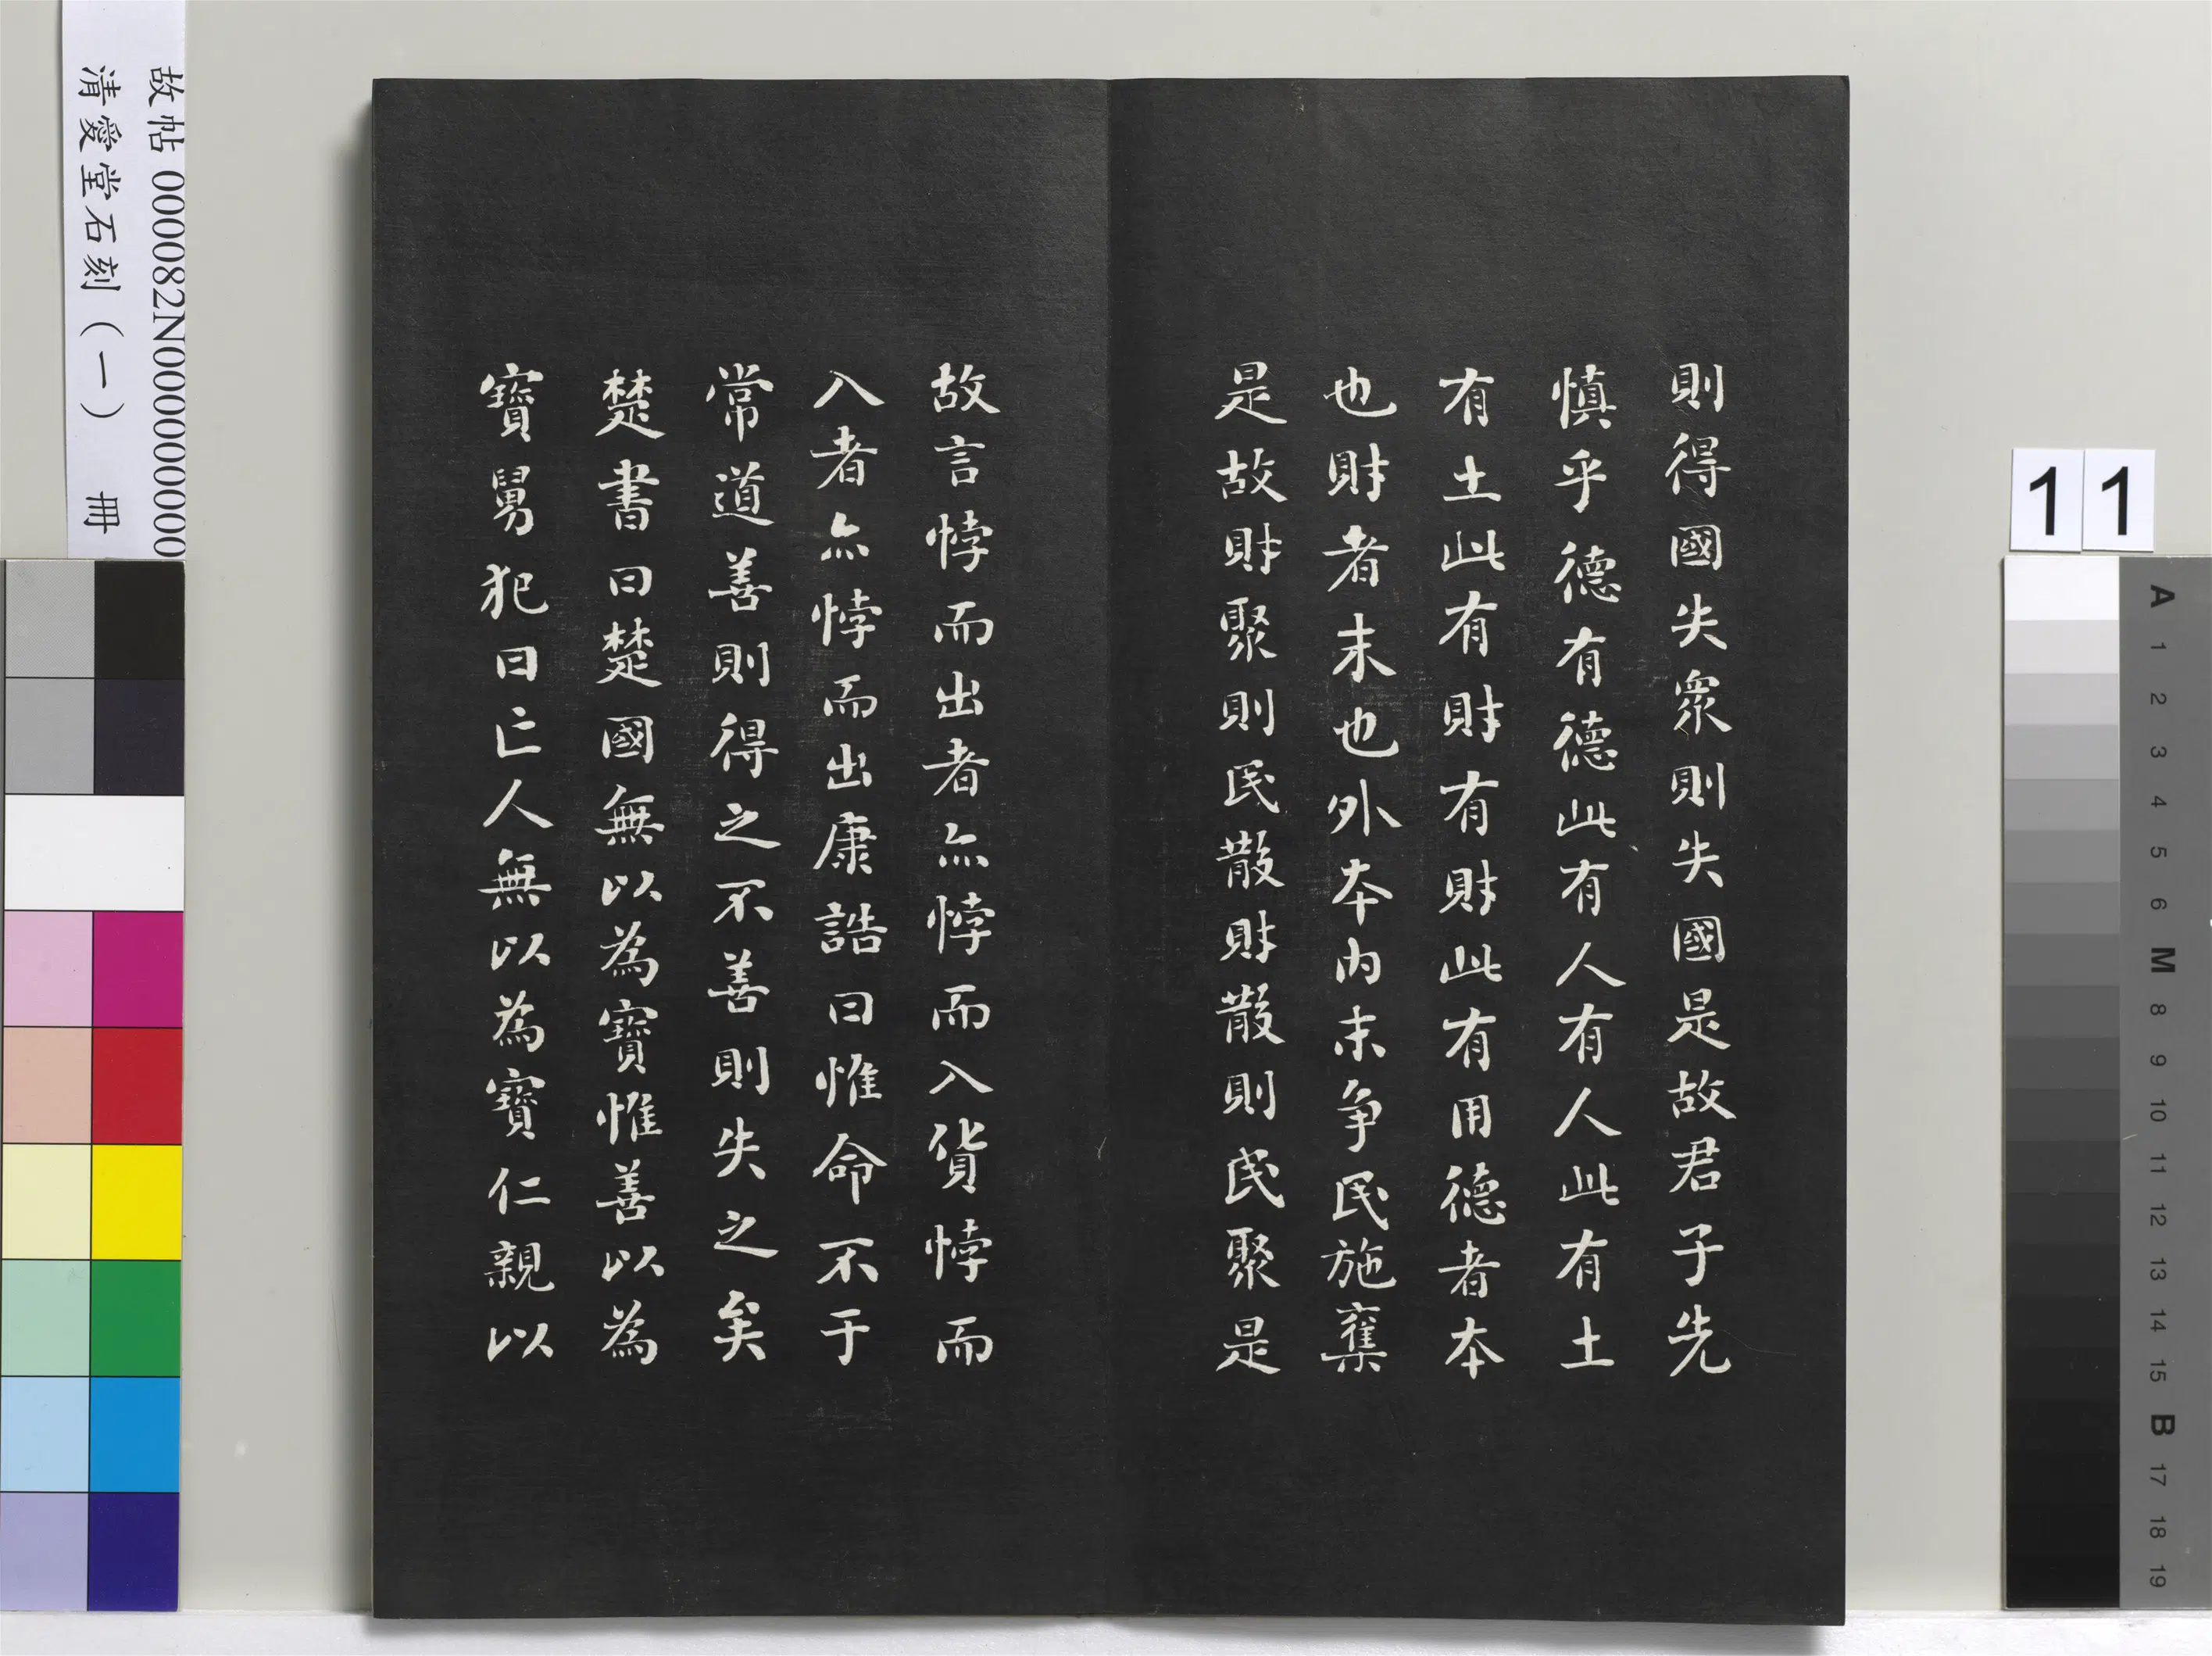 則得國失衆則失國是故君子先
慎乎德有德此有人有人此有土
有土此有財有財此有用德者本
也財者末也外本内末争民施奪
是故財聚則民散財散則民聚是
故言悖而出者亦悖而入貨悖而
入者亦悖而出康誥曰惟命不于
常道善則得之不善則失之矣
楚書曰楚國無以為寶惟善以為
寶舅犯曰亡人無以為寶仁親以
故帖 000082N000000000
清愛堂石刻（一） 冊
11
A 1 2 3 4 5 6 M 8 9 10 11 12 13 14 15 B 17 18 19